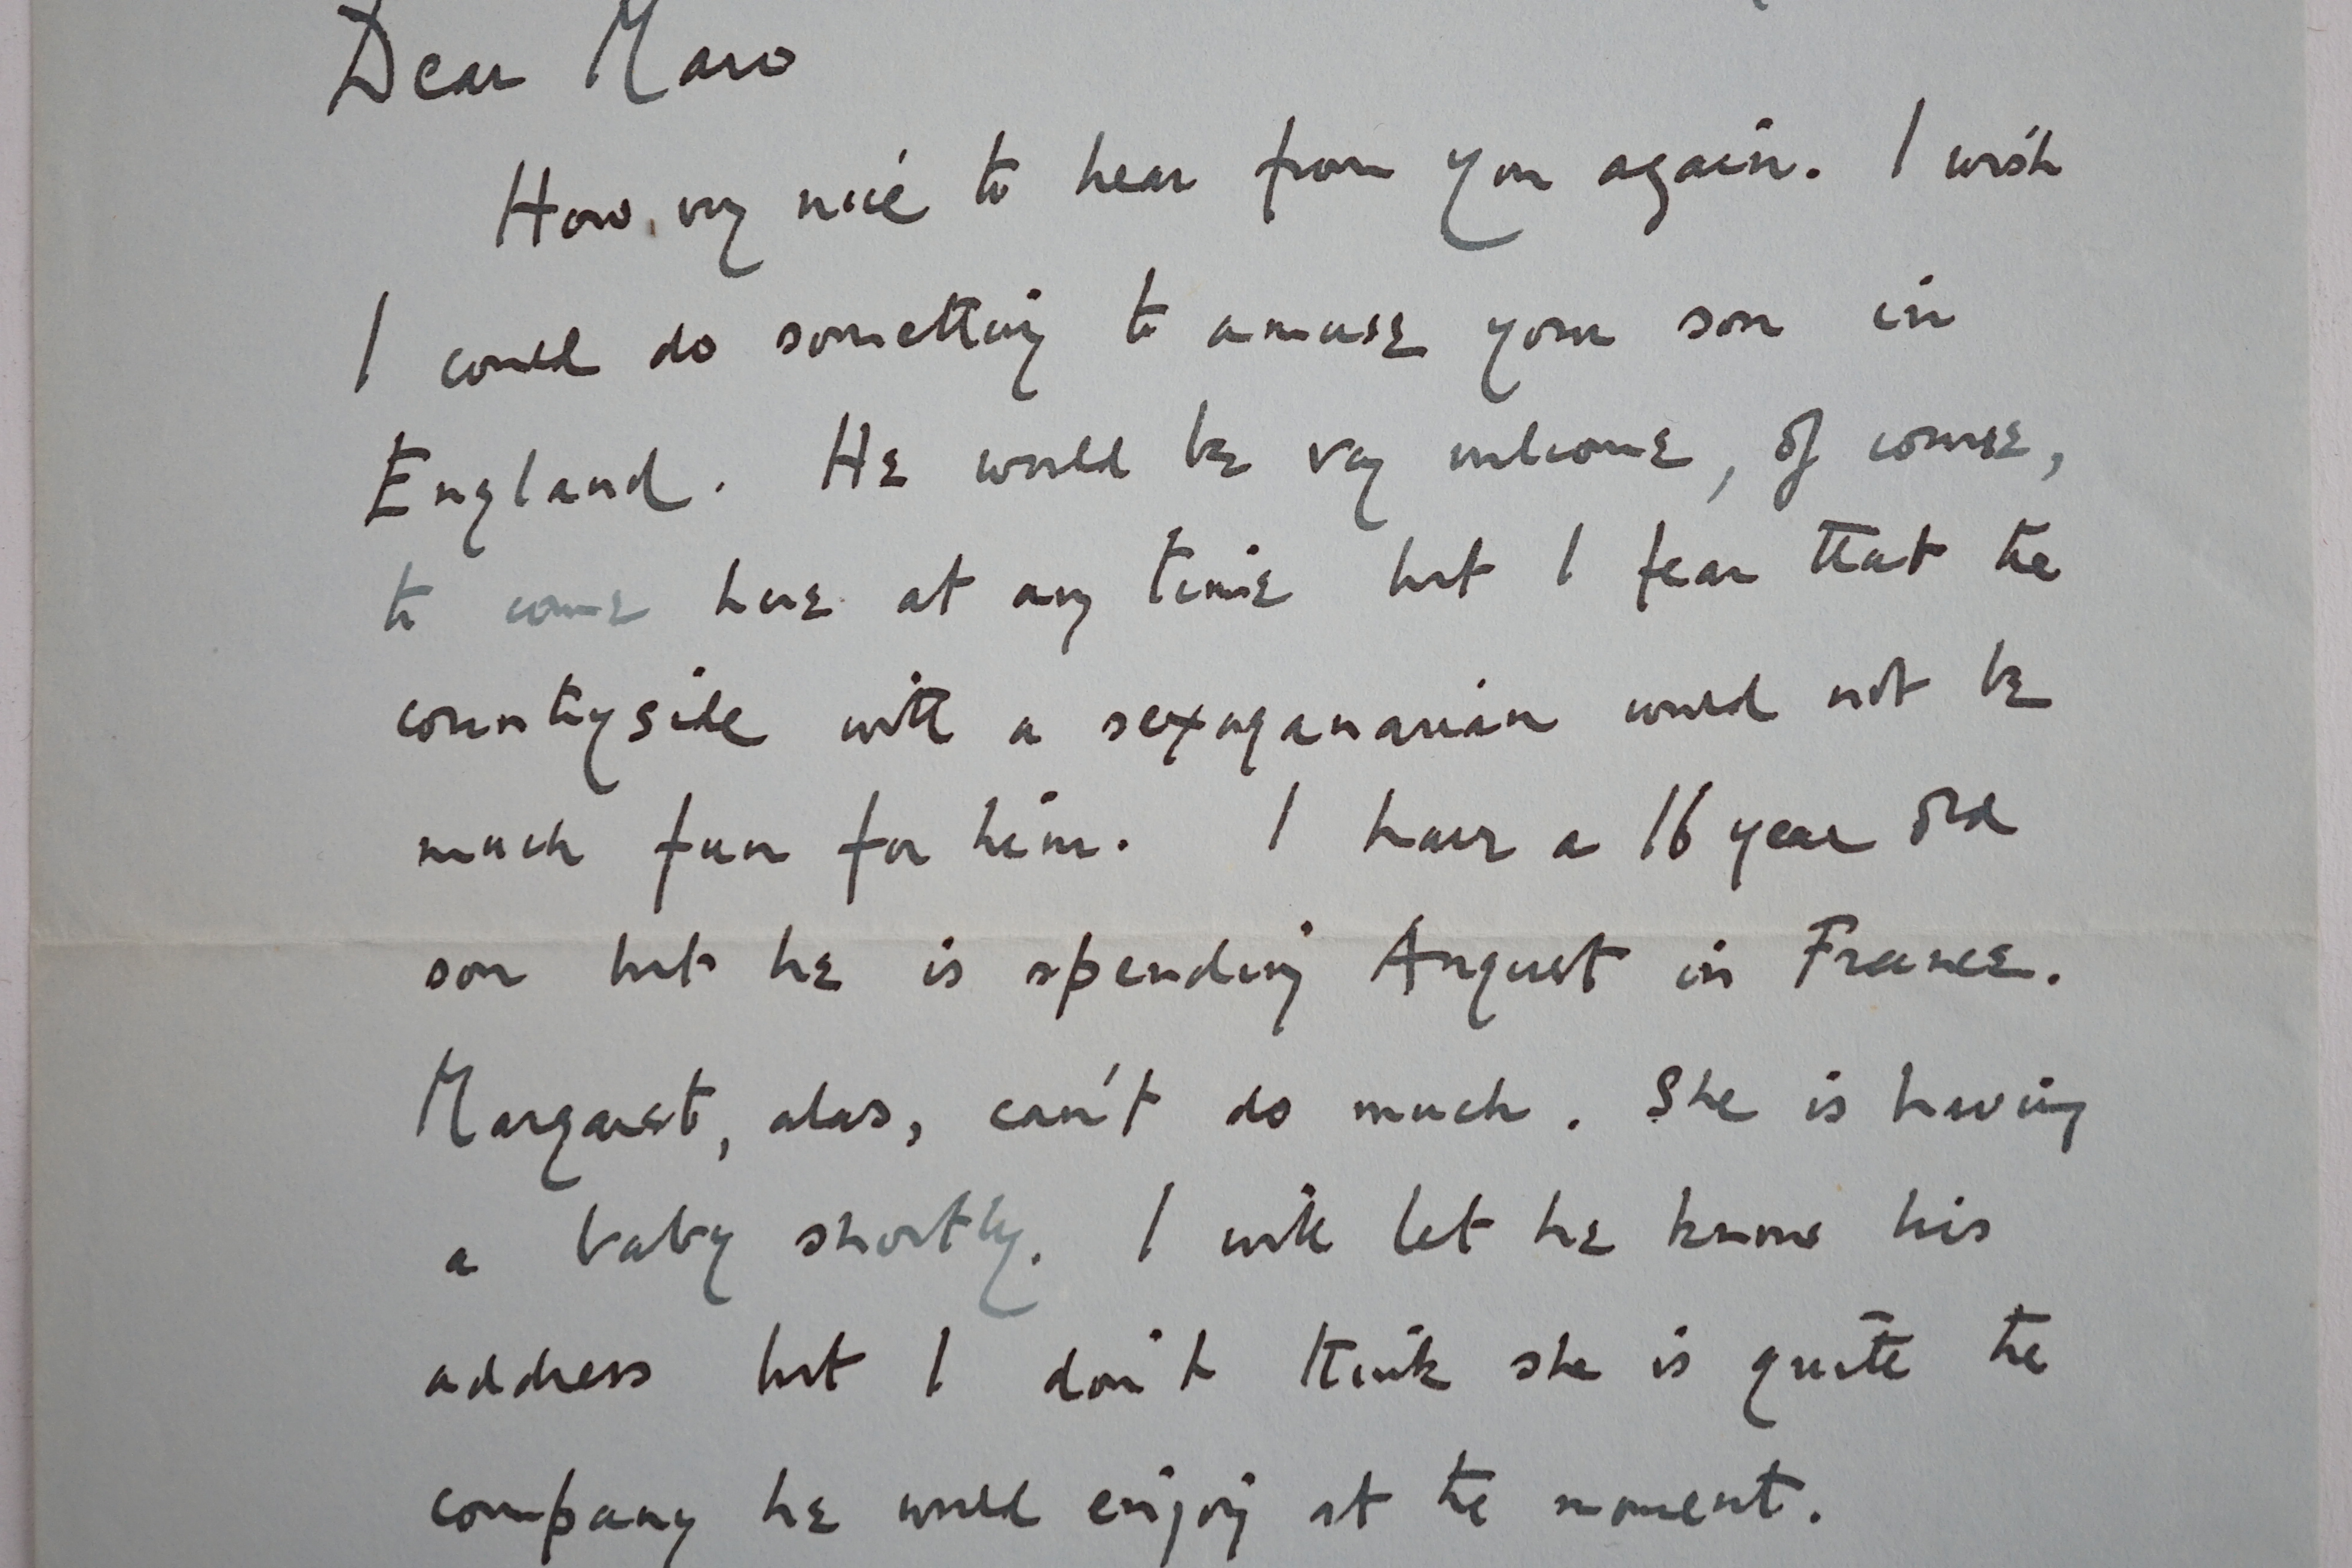 Dear Maro
How very nice to hear from you again. I wish
I could do something to amuse your son in
England. He would be very welcome, of course,
to come here at any time but I fear that the
countryside with a sexaganarian would not be
much fun for him. I have a 16 year old
son but he is spending August in France.
Margaret, alas, can't do much. She is having
a baby shortly. I will let he know his
address but I don't think she is quite the
company he would enjoy at the moment.